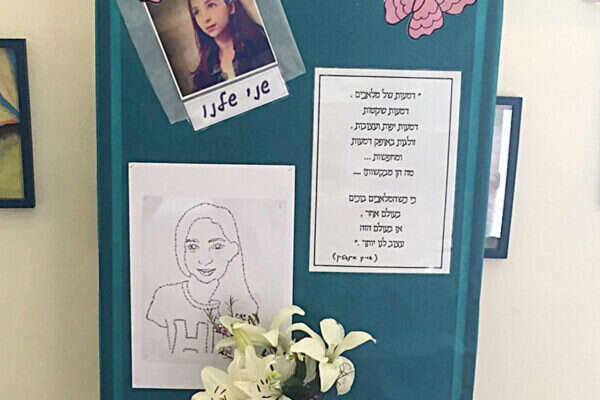 שני שלנו
" דמעות של מלאכים .
דמעות שקטות
דמעות יפות ועצובות .
זולגות באופק דמעות
ומחפשות ...
מה הן מבקשות? ...
כי כשהמלאכים בוכים
בעולם אחר ,
אז בעולם הזה
עצוב לנו יותר ."
H